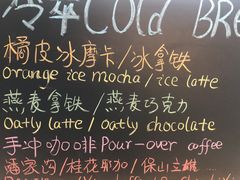 冷萃 COLD BRE
橘皮冰摩卡/冰拿铁
Orange ice mocha / ice latte
燕麦拿铁 / 燕麦巧克力
Oatly latte / oatly chocolate
手冲咖啡 Pour-over coffee
潘家湾/桂花耶加/保山立雄